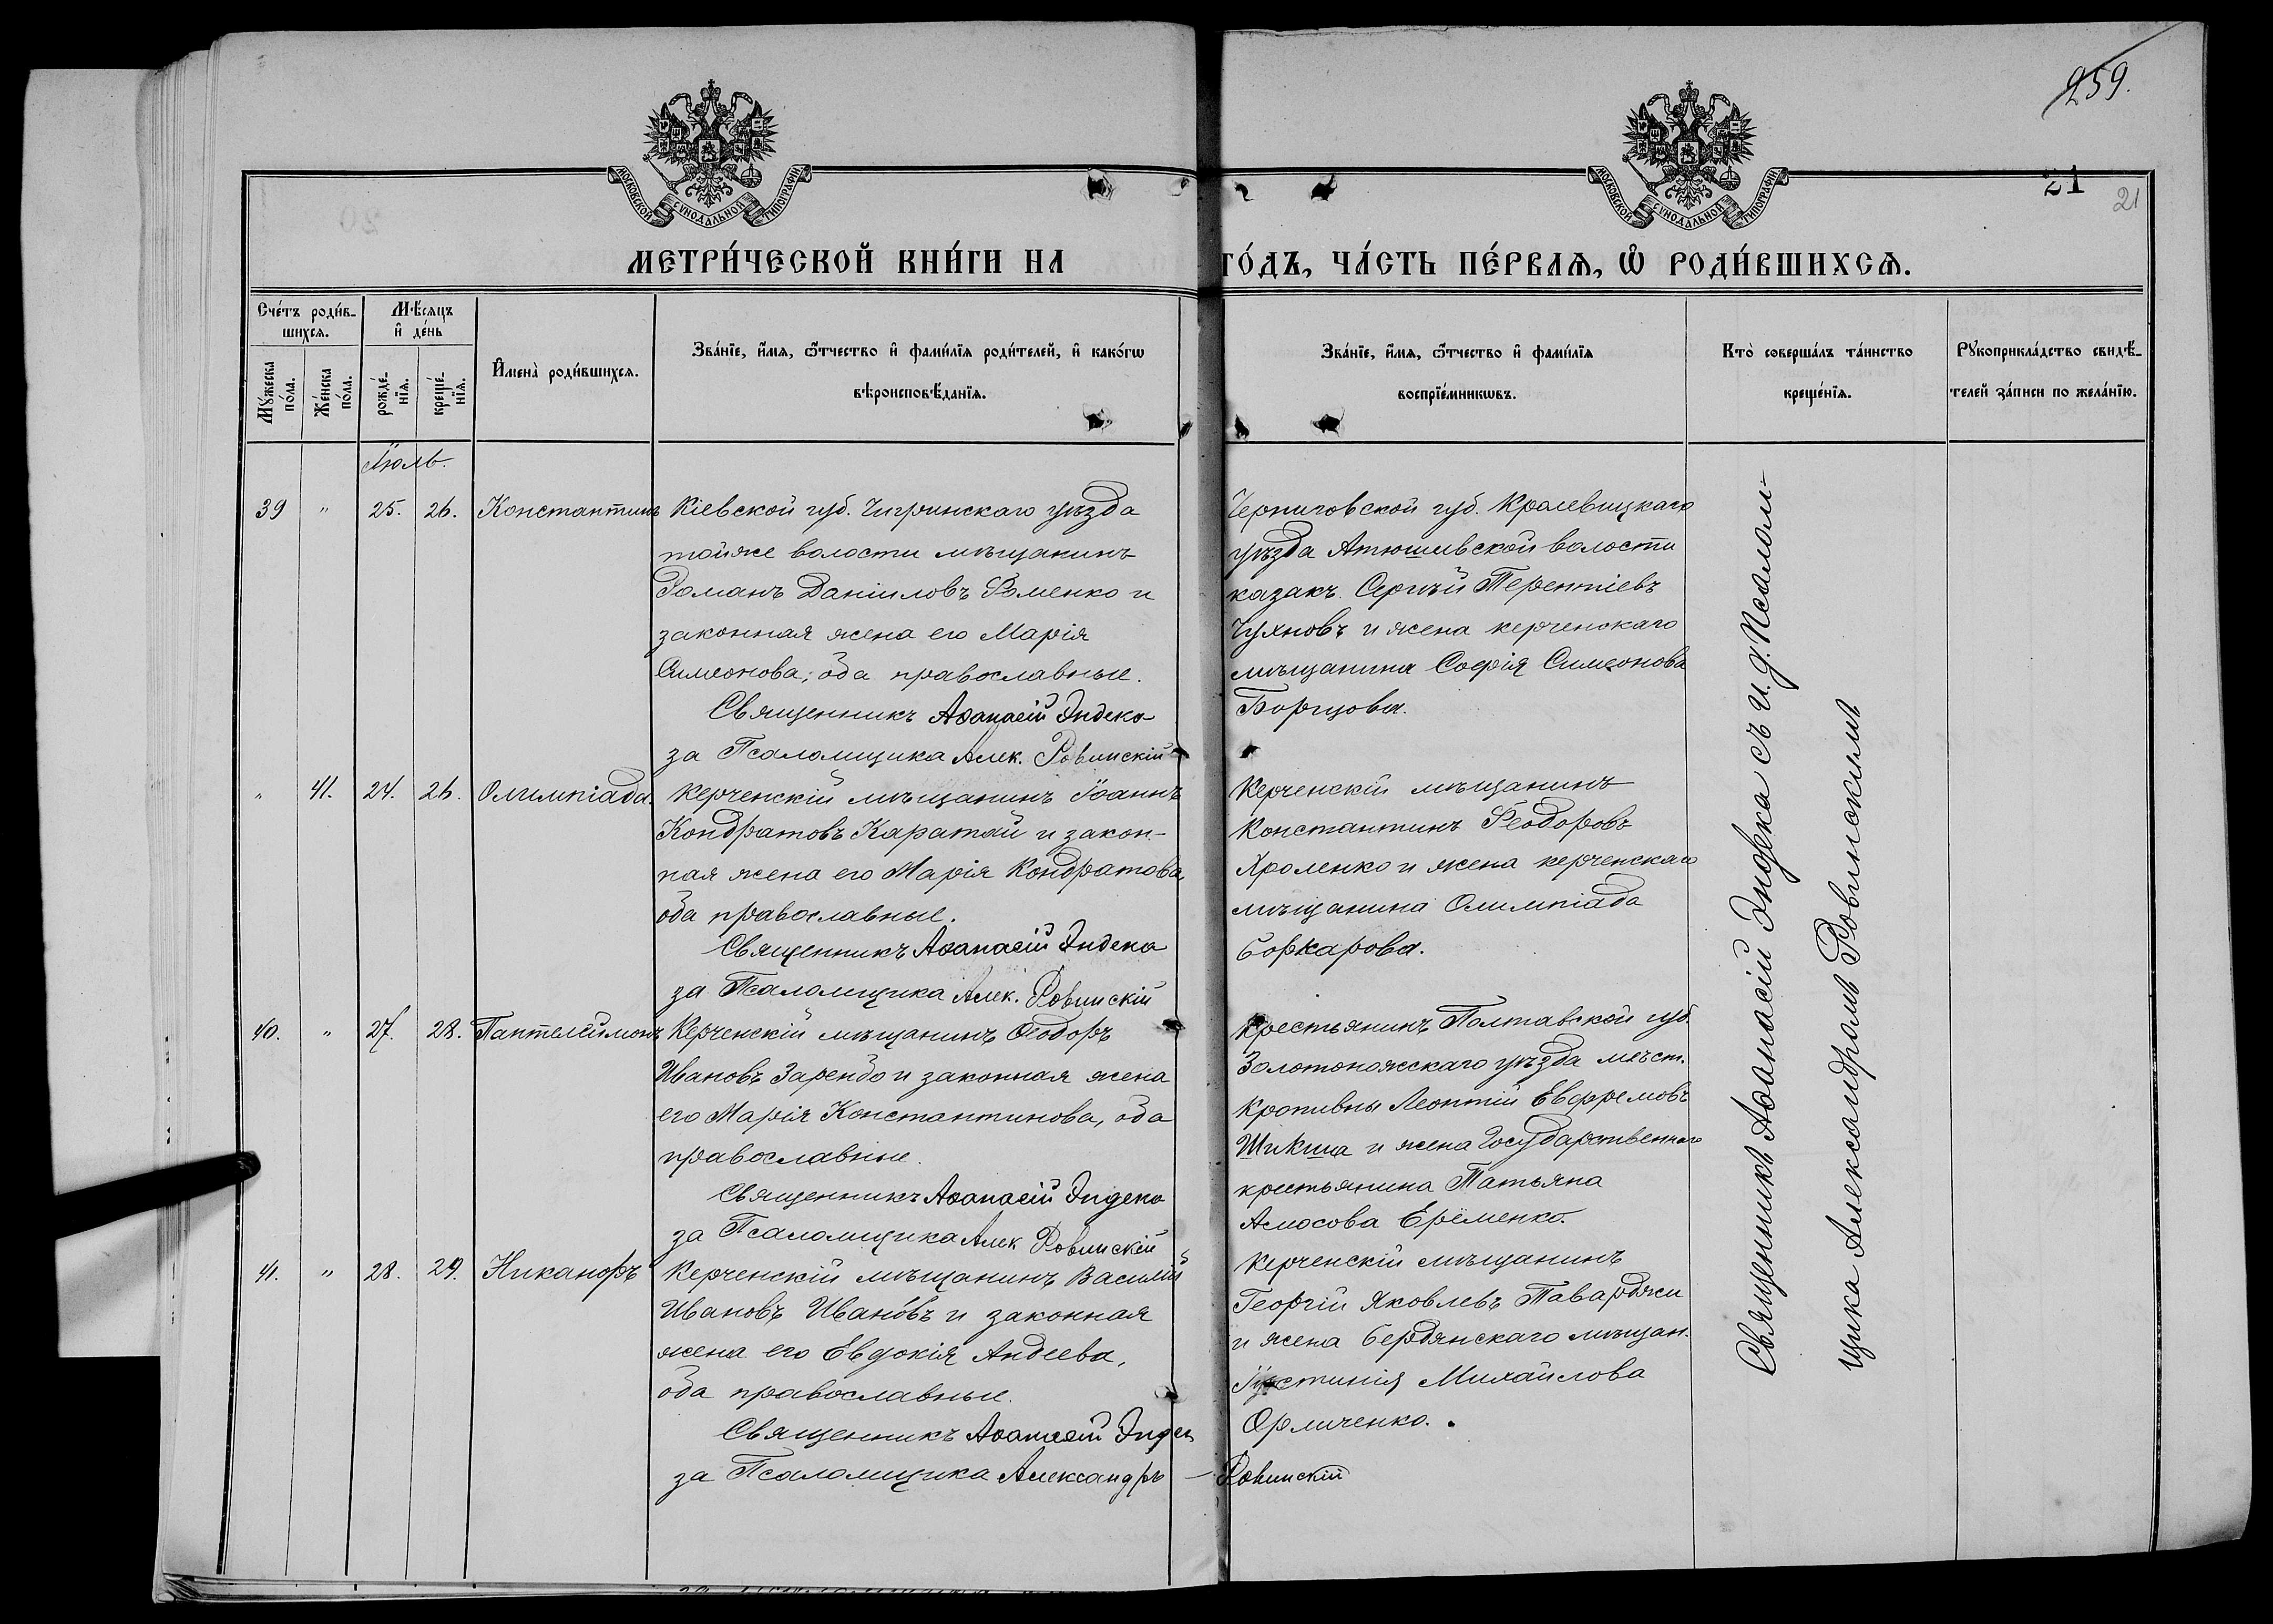 259.
21
21
МОСКОВСКОЙ СѴНОДАЛЬНОЙ ТИПОГРАФІИ
МОСКОВСКОЙ СѴНОДАЛЬНОЙ ТИПОГРАФІИ
МЕТРИ́ЧЕСКОЙ КНИ́ГИ НА ГО́ДЪ, ЧА́СТЬ ПЕ́РВАѦ, Ѽ РОДИ́ВШИХСѦ.
Сче́тъ роди́в-
шихсѧ.
Мꙋ́жеска по́ла.
Же́нска по́ла.
Мѣ́сѧцъ и҆ де́нь
рожде́-нїѧ.
креще́-нїѧ.
И҆мена̀ роди́вшихсѧ.
Зва́нїе, и҆́мѧ, ѻ҆́тчество и҆ фами́лїѧ роди́телей, и҆ како́гѡ
вѣроисповѣ́данїѧ.
Зва́нїе, и҆́мѧ, ѻ҆́тчество и҆ фами́лїѧ
воспрїе́мникѡвъ.
Кто̀ соверша́лъ та́инство
креще́нїѧ.
Рꙋкоприкла́дство свидѣ́-
телей за́писи по жела́нїю.
Іюль.
39 " 25. 26. Константинъ
Кіевской губ. Чигринскаго уѣзда
тойже волости мѣщанинъ
Романъ Даніиловъ Фоменко и
законная жена его Марія
Симеонова; оба православные.
Священникъ Аѳанасій Эндека
за Псаломщика Алек. Ровинскій
Черниговской губ. Кролевицкаго
уѣзда Атюшивской волости
казакъ Сергѣй Терентіевъ
Чухновъ и жена керченскаго
мѣщанина Софія Симеонова
Борцова.
" 41. 24. 26. Олимпіада.
Керченскій мѣщанинъ Іоаннъ
Кондратовъ Каратай и закон-
ная жена его Марія Кондратова,
оба православные.
Священникъ Аѳанасій Эндека
за Псаломщика Алек. Ровинскій
Керченскій мѣщанинъ
Константинъ Ѳеодоровъ
Хроленко и жена керченскаго
мѣщанина Олимпіада
Боркарова.
40. " 27. 28. Пантелеймонъ
Керченскій мѣщанинъ Ѳеодоръ
Ивановъ Зарендо и законная жена
его Марія Константинова, оба
православные.
Священникъ Аѳанасій Эндека
за Псаломщика Алек Ровинскій
Крестьянинъ Полтавской губ.
Золотоножскаго уѣзда мѣст.
Кропивны Леонтій Евфремовъ
Шикша и жена Государственнаго
крестьянина Татьяна
Амосова Ерёменко.
41. " 28. 29. Никаноръ
Керченскій мѣщанинъ Василій
Ивановъ Ивановъ и законная
жена его Евдокія Андеева,
оба православные.
Священникъ Аѳанасій Эндек
за Псаломщика Александръ — Ровинскій
Керченскій мѣщанинъ
Георгій Яковлевъ Таварджи
и жена бердянскаго мѣщан.
Іустинія Михайлова
Орличенко.
Священникъ Аѳанасій Эндека съ и. д. Псалом-
щика Александромъ Ровинскимъ